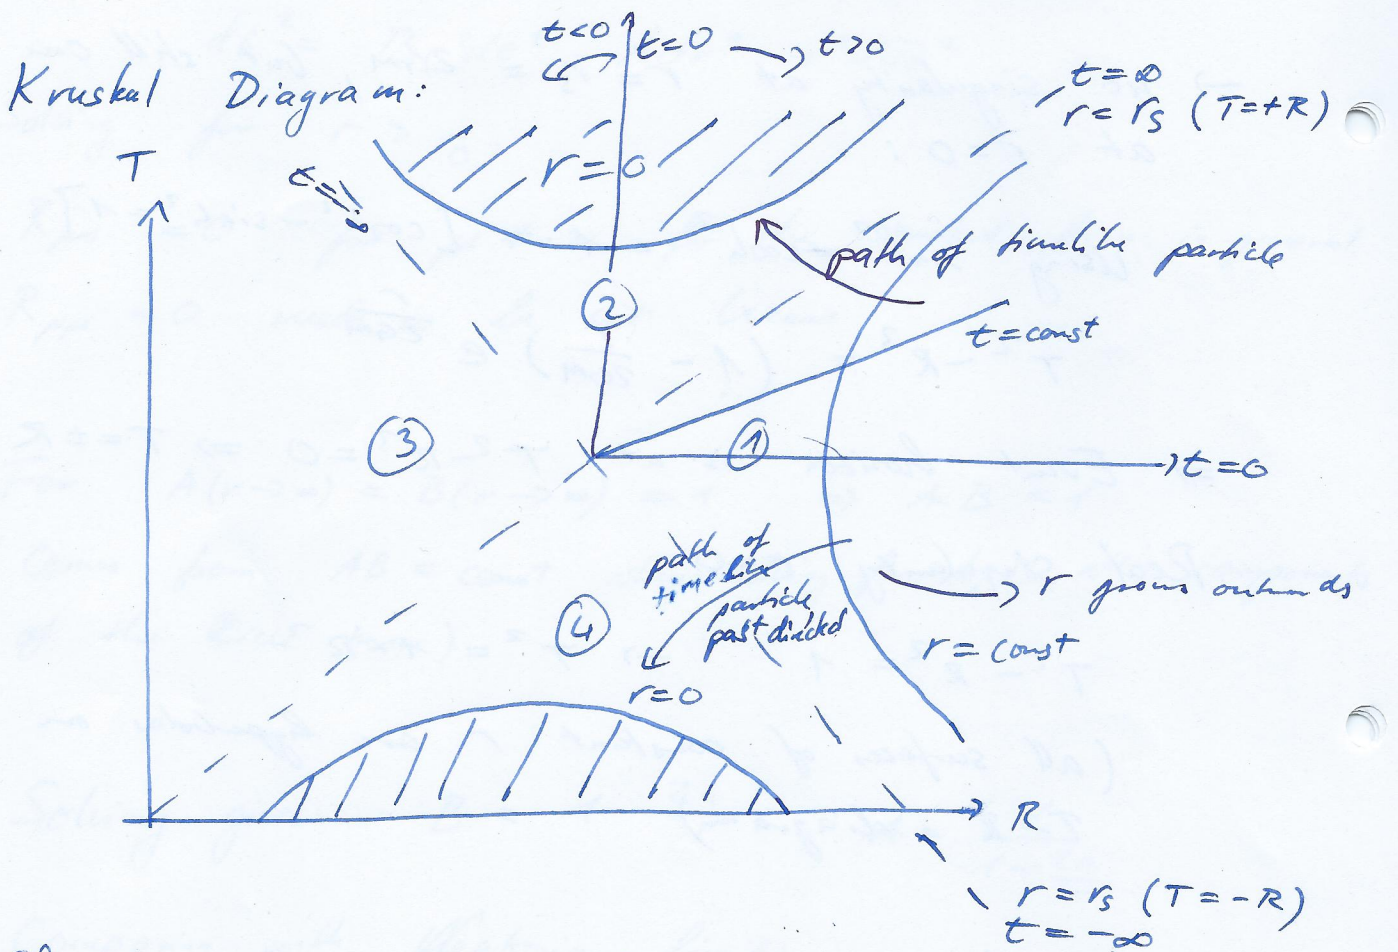 t<0
t=0
t>0
Kruskal Diagram:
t=∞
r=rs (T=+R)
T
r=0
path of timelike particle
②
t=const
③
①
t=0
path of
timelike
particle
past directed
r grows outwards
④
r=const
r=0
R
r=rs (T=-R)
t=-∞